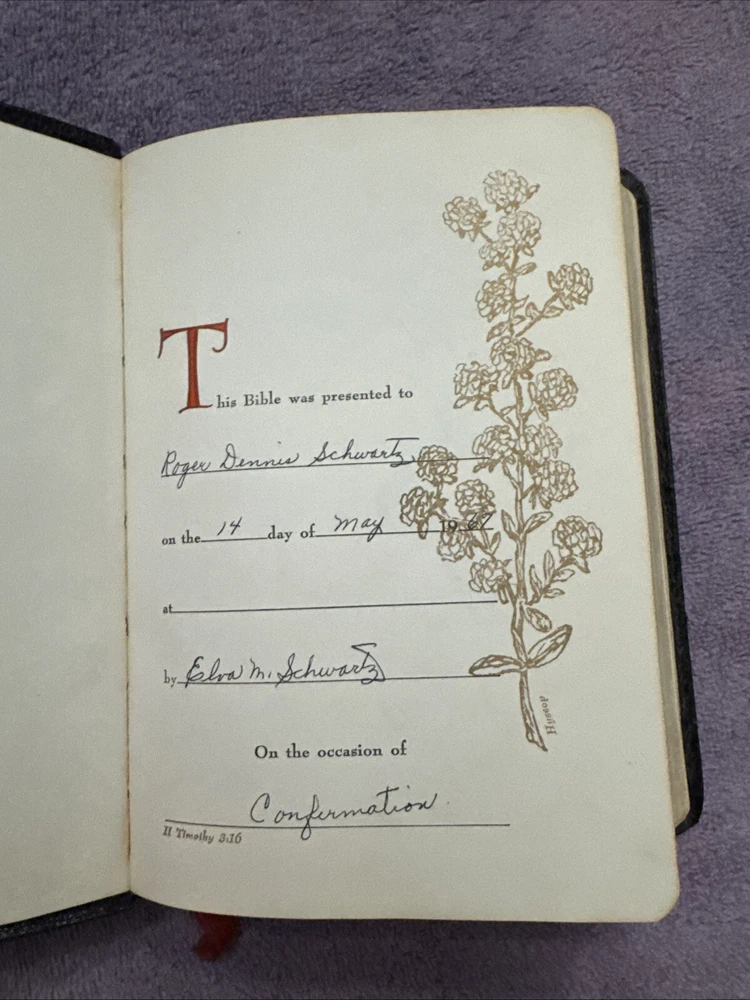 This Bible was presented to
Roger Dennis Schwartz
on the 14 day of May 1967
at
by Elva M. Schwartz
Hyssop
On the occasion of
Confermation
II Timothy 3:16